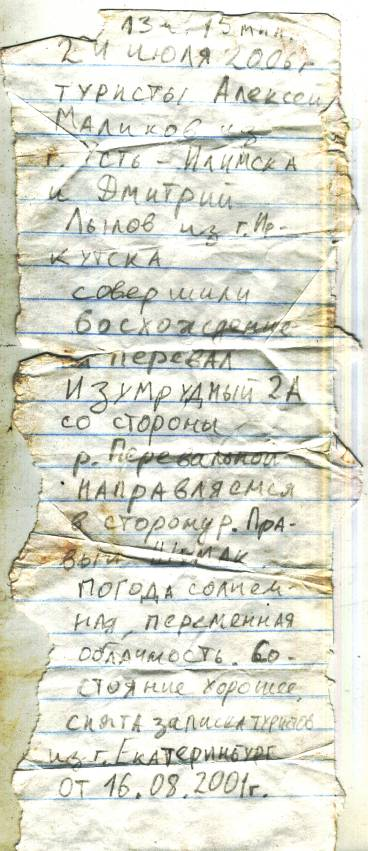 13ч. 15мин.
24 июля 2006г
туристы Алексей
Маликов из
г. Усть-Илимска
и Дмитрий
Лылов из г. Ир-
кутска
совершили
восхождение
перевал
Изумрудный 2А
со стороны
р. Перевальной
направляемся
в сторону р. Пра-
вый Шумак
погода солнеч
ная, переменная
облачность. Со-
стояние хорошее
снята записка туристов
из г. Екатеринбург
от 16.08.2001г.